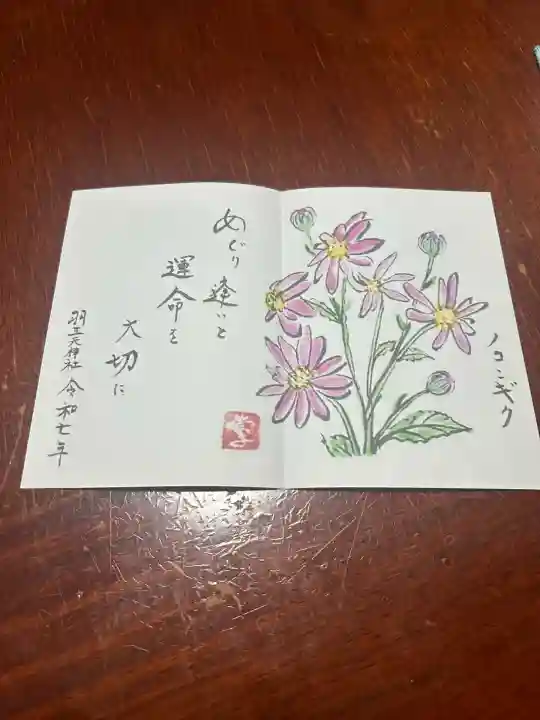 ノコンギク
めぐり逢いと
運命を
大切に
羽玉天神社 令和七年